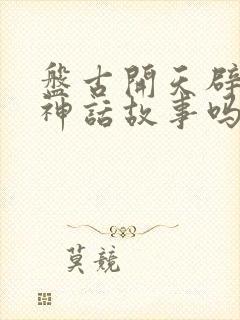 盤古開天辟
神話故事吗
莫競